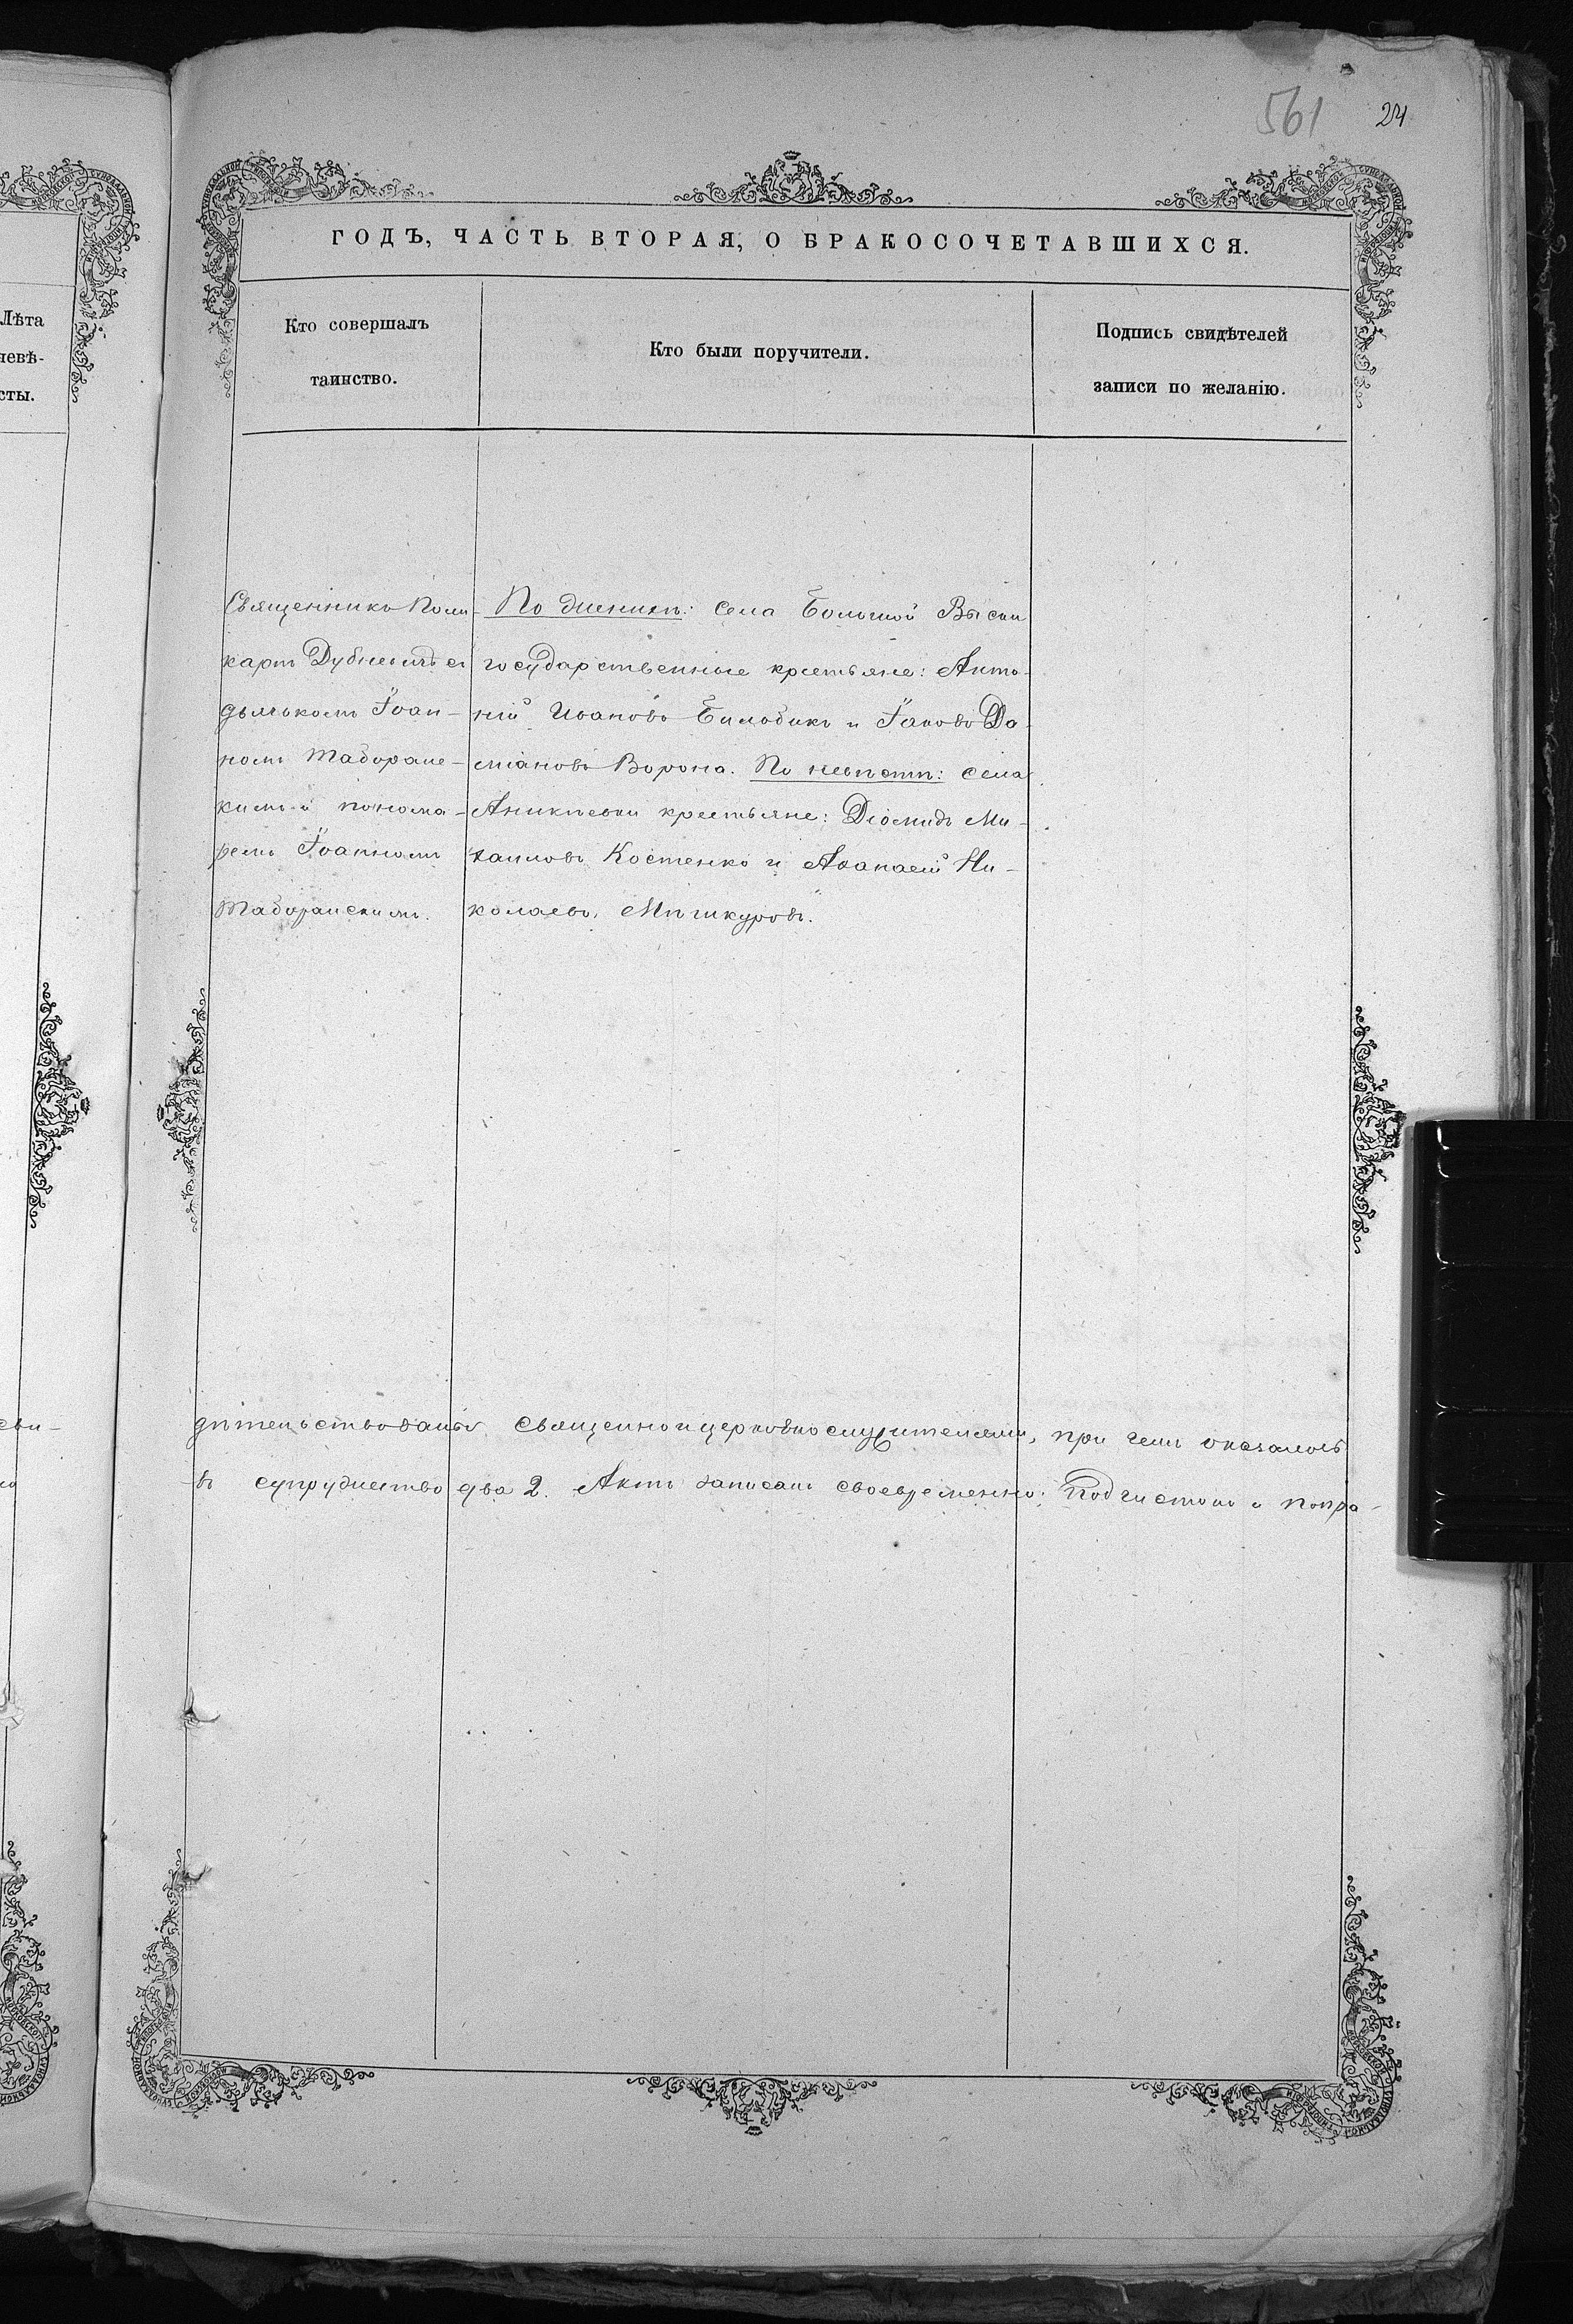 561 24
ГОДЪ, ЧАСТЬ ВТОРАЯ, О БРАКОСОЧЕТАВШИХСЯ.
Лѣта
невѣ-
сты.
Кто совершалъ
таинство.
Кто были поручители.
Подпись свидѣтелей
записи по желанію.
Священникъ Поли-
карпъ Дубневичъ съ
дьячкомъ Іоан-
номъ Таборанс-
кимъ и понома-
ремъ Іоанномъ
Таборанскимъ.
По женихѣ: села Большой Выски
государственные крестьяне: Анто-
ній Ивановъ Билобикъ и Іаковъ Да-
міановъ Ворона. По невѣстѣ: села
Аникѣевки крестьяне: Діомидъ Ми-
хаиловъ Костенко и Аѳанасій Ни-
колаевъ Мѣшкуровъ.
сви-
дѣтельствованы священноицерковнослужителями, при чемъ оказалось
въ супружество два 2. Актъ записанъ своевременно; подчистокъ и попра-